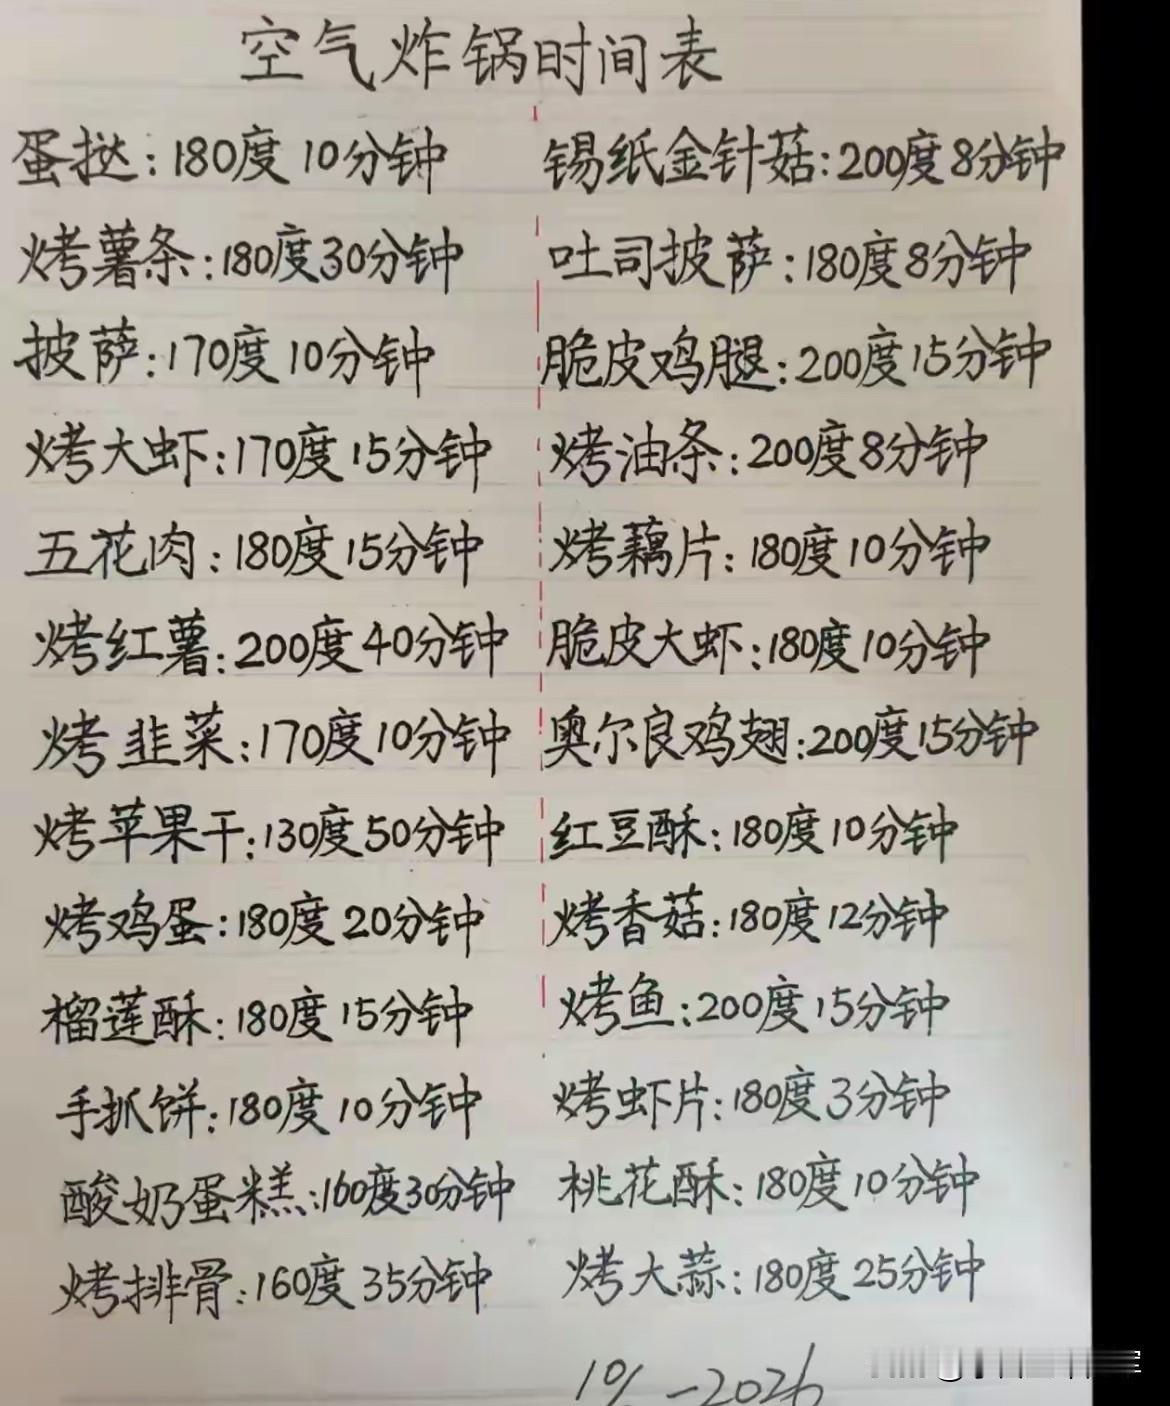 空气炸锅时间表
蛋挞:180度10分钟
烤薯条:180度30分钟
披萨:170度10分钟
烤大虾:170度15分钟
五花肉:180度15分钟
烤红薯:200度40分钟
烤韭菜:170度10分钟
烤苹果干:130度50分钟
烤鸡蛋:180度20分钟
榴莲酥:180度15分钟
手抓饼:180度10分钟
酸奶蛋糕:160度30分钟
烤排骨:160度35分钟
锡纸金针菇:200度8分钟
吐司披萨:180度8分钟
脆皮鸡腿:200度15分钟
烤油条:200度8分钟
烤藕片:180度10分钟
脆皮大虾:180度10分钟
奥尔良鸡翅:200度15分钟
红豆酥:180度10分钟
烤香菇:180度12分钟
烤鱼:200度15分钟
烤虾片:180度3分钟
桃花酥:180度10分钟
烤大蒜:180度25分钟
-2026